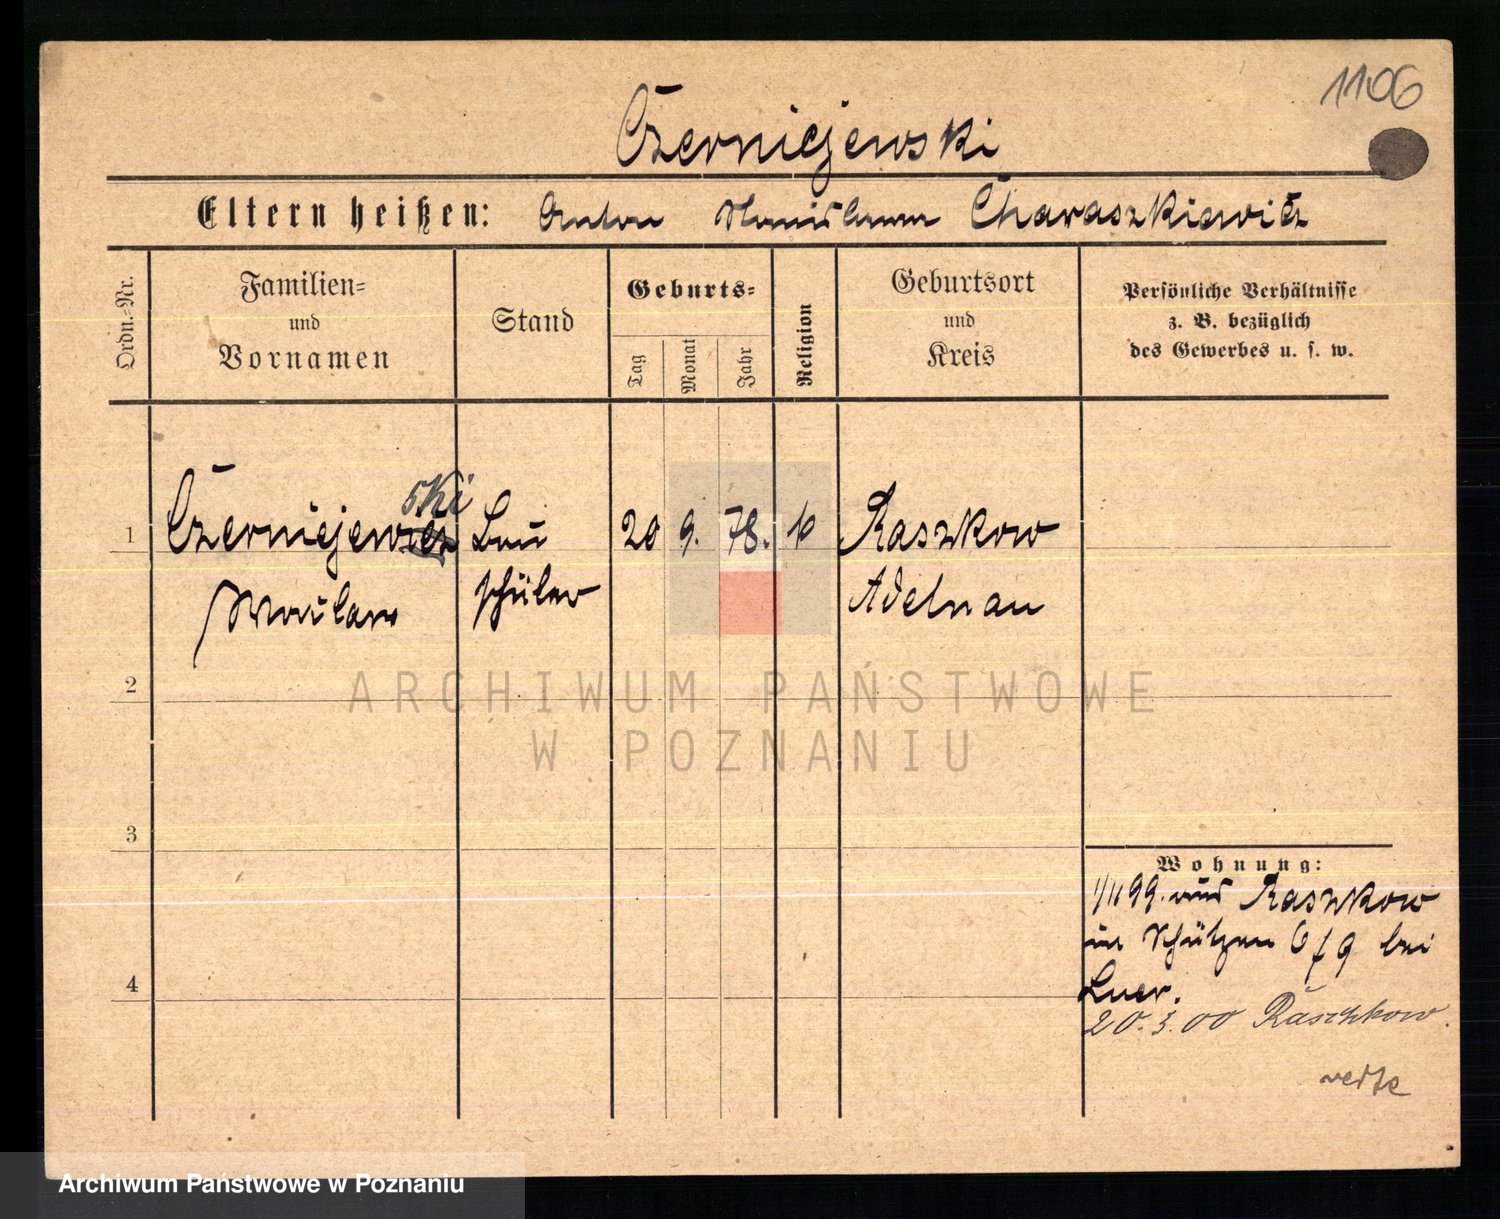 1106
Czerniejewski
Eltern heißen: Anton Stanislawa Charaszkiewicz
Ordn.-Nr.
Familien-
und
Vornamen
Stand
Geburts-
Tag
Monat
Jahr
Religion
Geburtsort
und
Kreis
Persönliche Verhältnisse
z. B. bezüglich
des Gewerbes u. s. w.
ski
1 Czerniejewicz Bau 20 9. 78. k Raszkow
schüler Adelnau
2
ARCHIWUM PAŃSTWOWE
W POZNANIU
3
Wohnung:
1/11 99. aus Raszkow
in Schützen 6/9 bei
20.3.00 Raschkow.
4
verte
Archiwum Państwowe w Poznaniu